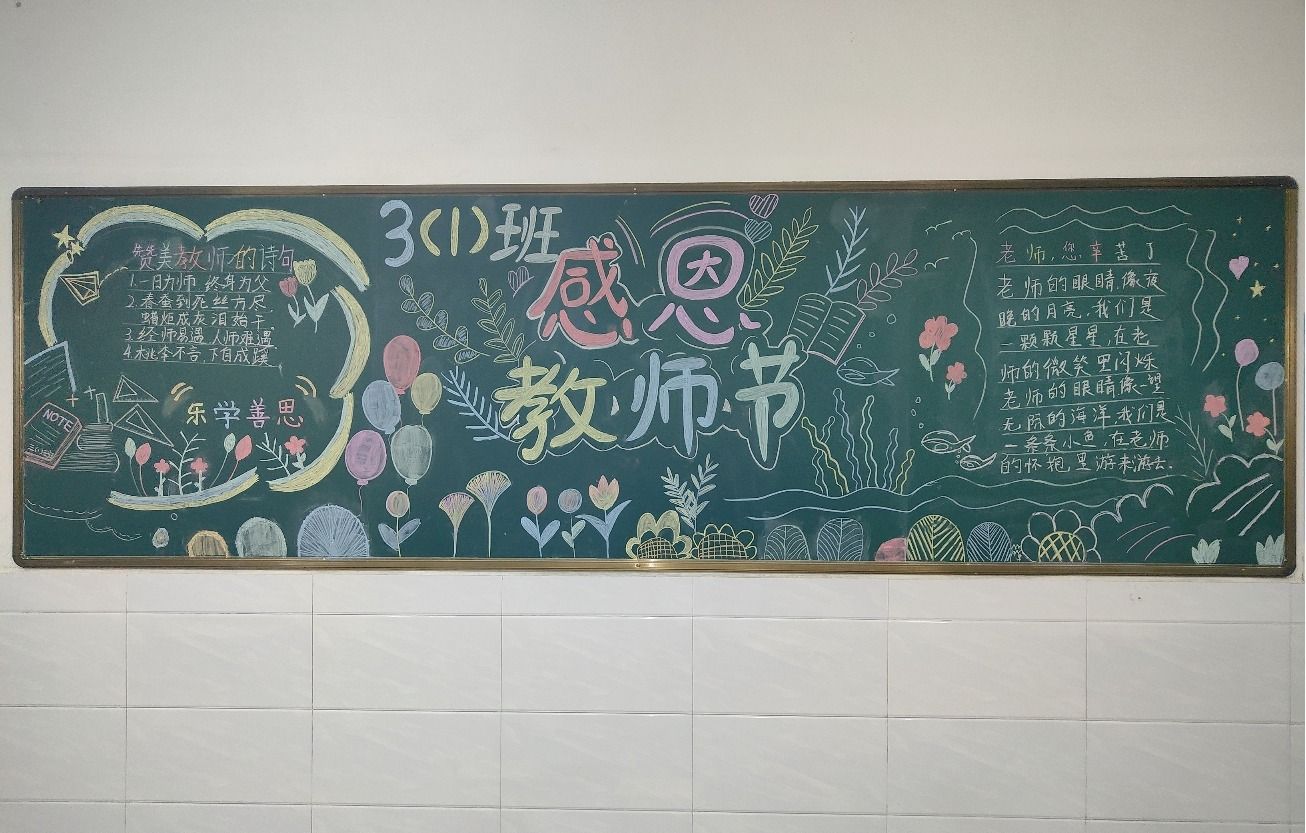 赞美教师的诗句
1.一日为师 终身为父
2.春蚕到死丝方尽
蜡炬成灰泪始干
3.经师易遇 人师难遇
4.桃李不言,下自成蹊
乐学善思
NOTE
3(1)班
感恩
教师节
老师,您辛苦了
老师的眼睛,像夜
晚的月亮,我们是
一颗颗星星,在老
师的微笑里闪烁
老师的眼睛像一望
无际的海洋,我们是
一条条小鱼,在老师
的怀抱里游来游去.